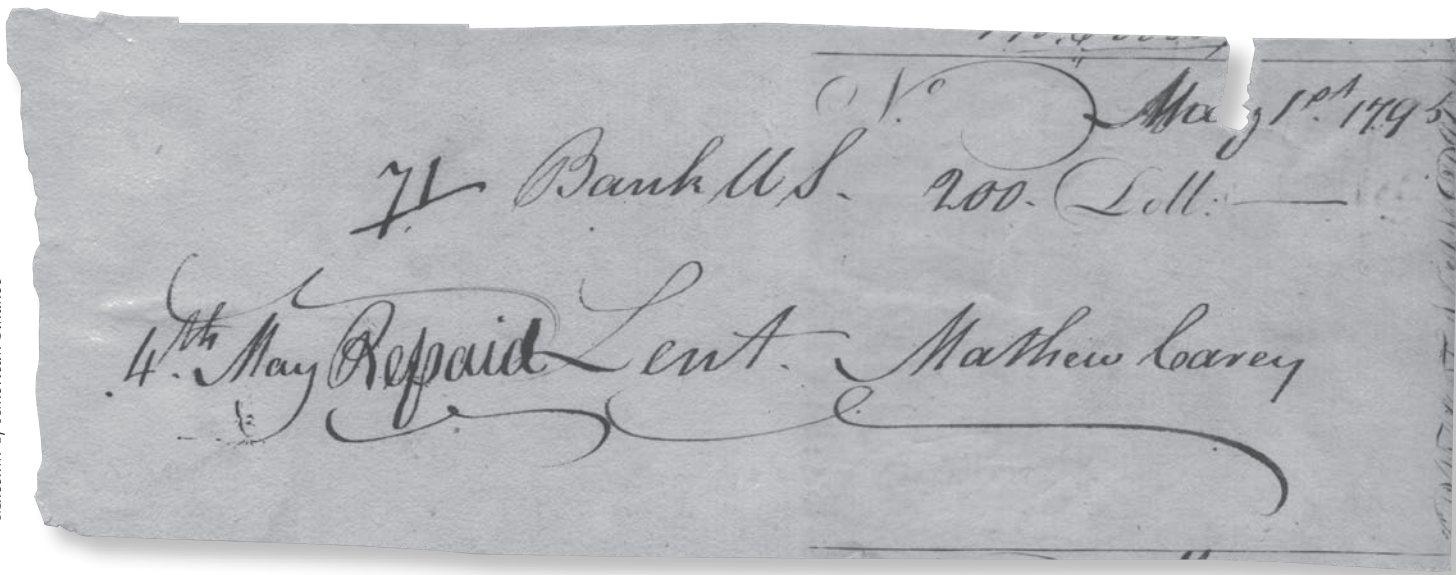 No. May 1st. 1795
71 Bank U S. 200. Doll:
4th. May Repaid Lent. Mathew Carey